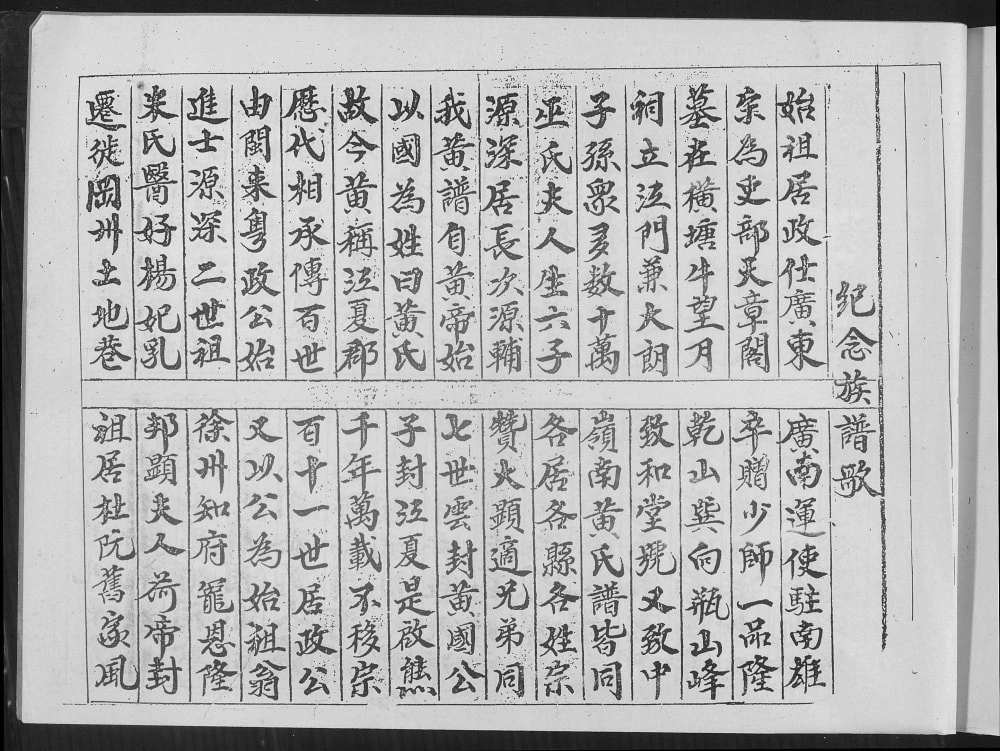 紀念族譜歌
始祖居政仕廣東
廣南運使駐南雄
宋為吏部天章閣
卒贈少師一品隆
墓在橫塘牛望月
乾山巽向瓶山峰
祠立江門兼大朗
致和堂號又致中
子孫衆多数十萬
嶺南黃氏譜皆同
巫氏夫人生六子
各居各縣各姓宗
源深居長次源輔
贊火顯適兄弟同
我黃譜自黃帝始
七世雲封黃國公
以國為姓曰黃氏
子封江夏是啟熊
故今黃稱江夏郡
千年萬載不移宗
歷代相承傳百世
百十一世居政公
由閩來粵政公始
又以公為始祖翁
進士源深二世祖
徐州知府寵恩隆
宋氏醫好楊妃乳
邦顯夫人荷帝封
遷徙岡州土地巷
祖居杜阮舊家風